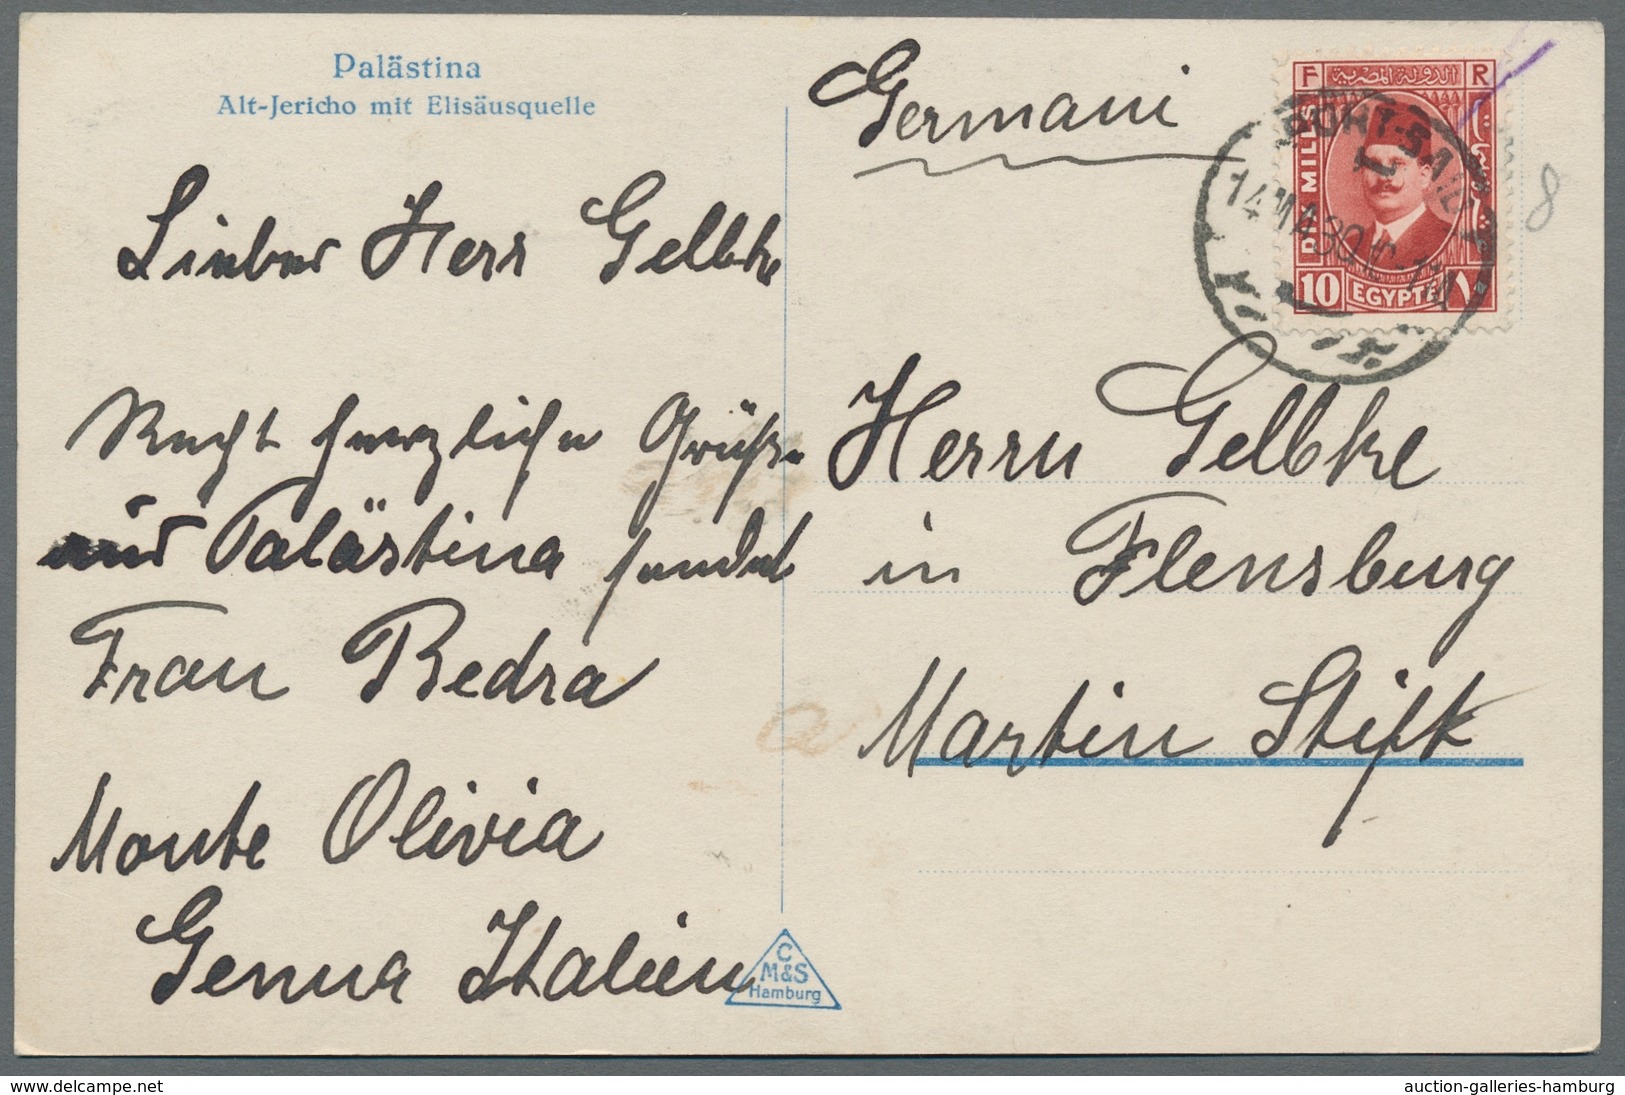 Palästina
Alt-Jericho mit Elisäusquelle
Lieber Herr Gelbke
Recht herzliche Grüße
aus Palästina sendet
Frau Bedra
Monte Olivia
Genua Italien
Germani
Herrn Gelbke
in Flensburg
Martin Stift
F R
الدولة المصرية
POSTES
MILLS
10 EGYPTE ١٠
PORT-SAID
14 MA 30
8
C
M&S
Hamburg
www.delcampe.net
auction-galleries-hamburg